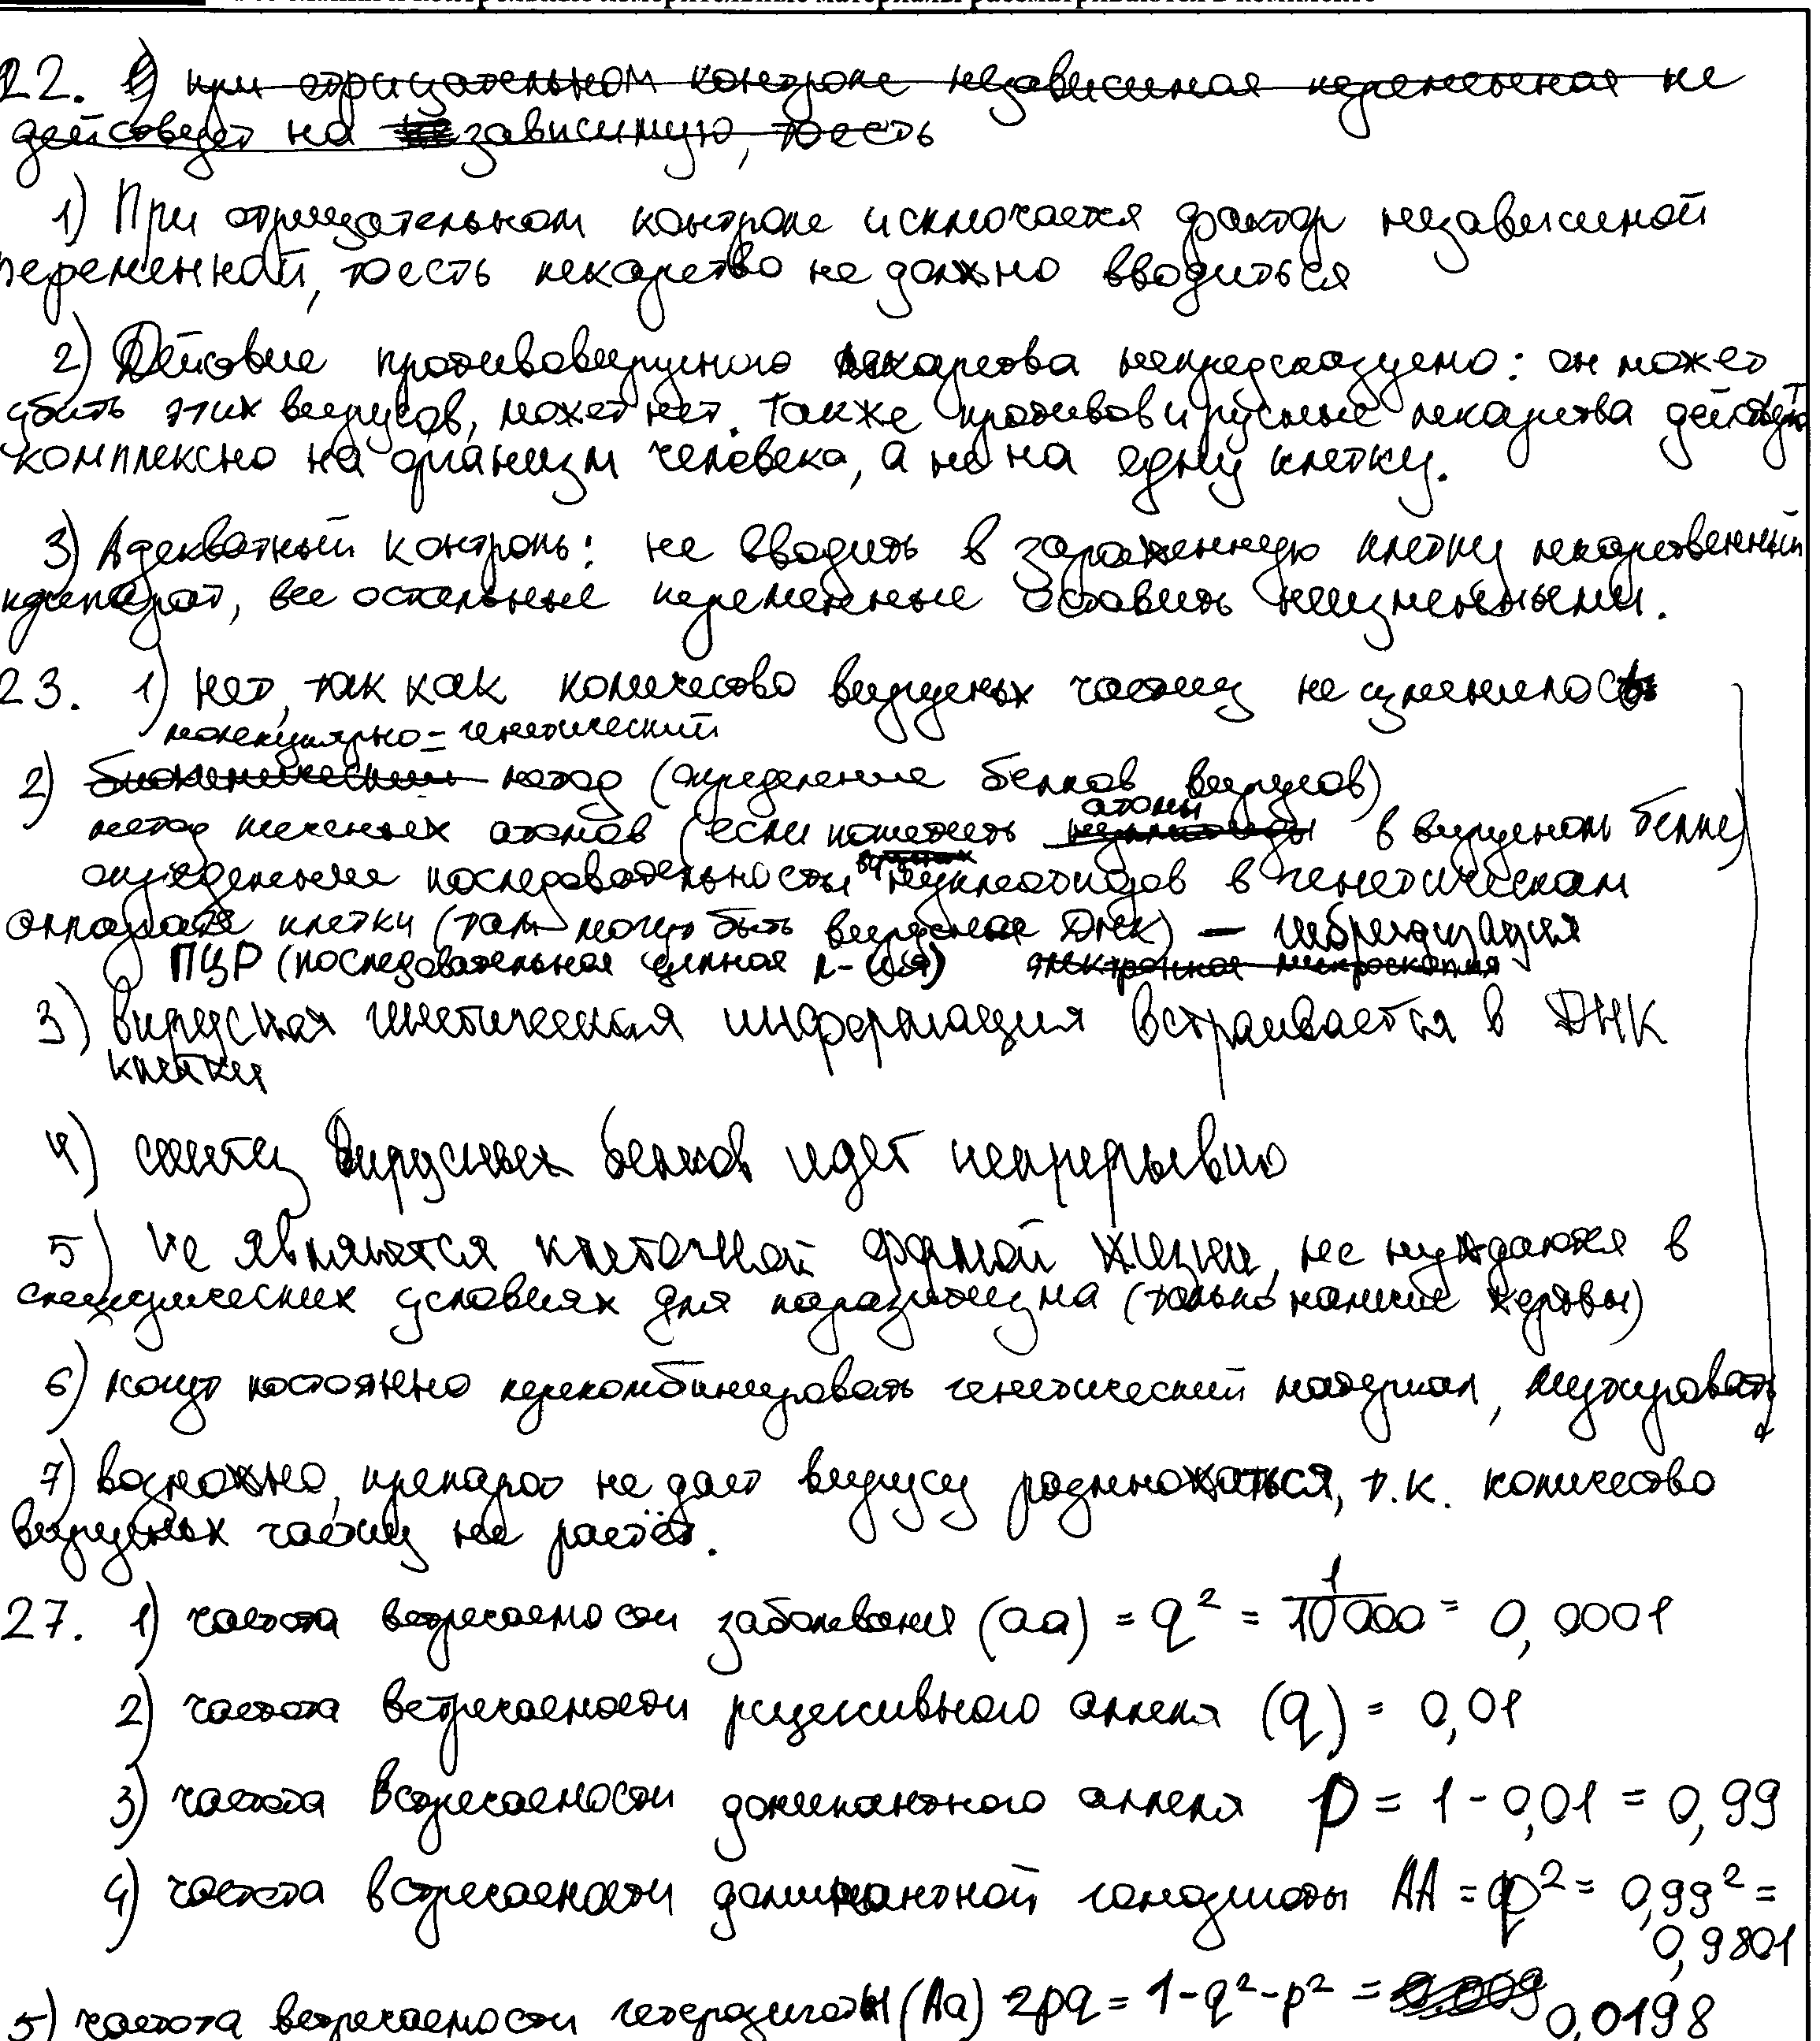 22. при отрицательном контроле независимая переменная не
действует на зависимую, тоесть
1) При отрицательном контроле исключается фактор независимой
переменной, тоесть лекарство не должно вводиться
2) Действие противовирусного лекарства непредсказуемо: он может
убить этих вирусов, может нет. Также противовирусные лекарства действуют
комплексно на организм человека, а не на одну клетку.
3) Адекватный контроль: не вводить в зараженную клетку лекарственный
препарат, все остальные переменные оставить неизменными.
23. 1) нет, так как количество вирусных частиц не изменилось
молекулярно-генетический
2) биохимический метод (определение белков вирусов)
атомы
метод меченых атомов (если пометить нуклеотиды в вирусном белке)
определение последовательности нуклеотидов в генетическом
аппарате клетки (там могут быть вирусные ДНК) – гибридизация
ПЦР (последовательная цепная р-ия) электронная микроскопия
3) вирусная генетическая информация встраивается в ДНК
клетки
4) синтез вирусных белков идет непрерывно
5) не являются клеточной формой жизни, не нуждаются в
специфических условиях для паразитизма (только наличие жертвы)
6) могут постоянно перекомбинировать генетический материал, мутировать
7) возможно, препарат не дает вирусу размножаться, т.к. количество
вирусных частиц не растёт.
27. 1) частота встречаемости заболевания (аа) = q² = 1/10000 = 0,0001
2) частота встречаемости рецессивного аллеля (q) = 0,01
3) частота встречаемости доминантного аллеля p = 1 - 0,01 = 0,99
4) частота встречаемости доминантной гомозиготы АА = p² = 0,99² =
0,9801
5) частота встречаемости гетерозиготы (Аа) 2pq = 1-q²-p² = 0,0198